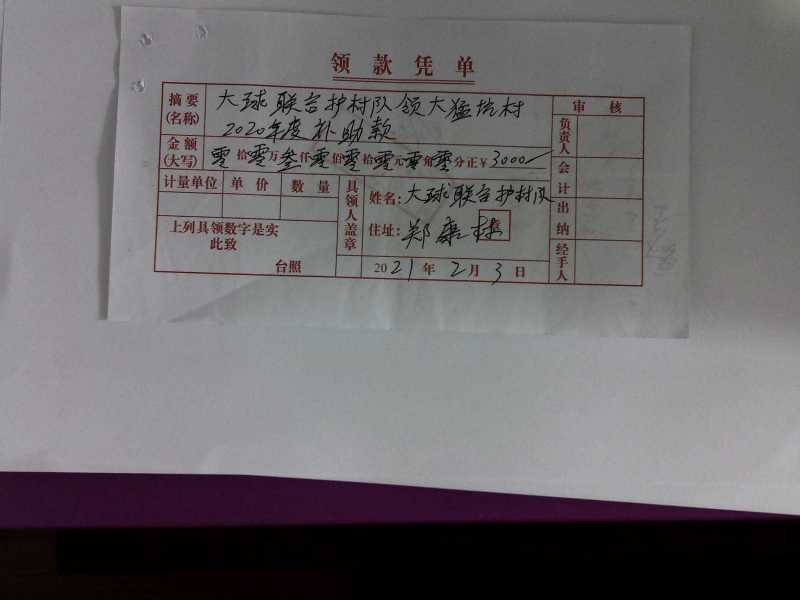 领款凭单
摘要
(名称)
大球联合护村队领大猛坑村
2020年度补助款
审核
负责人
会计
出纳
经手人
金额
(大写)
零拾零万叁仟零佰零拾零元零角零分正¥3000
计量单位 单价 数量
具领人盖章
姓名:大球联合护村队
住址:郑康
上列具领数字是实
此致
台照
2021年2月3日